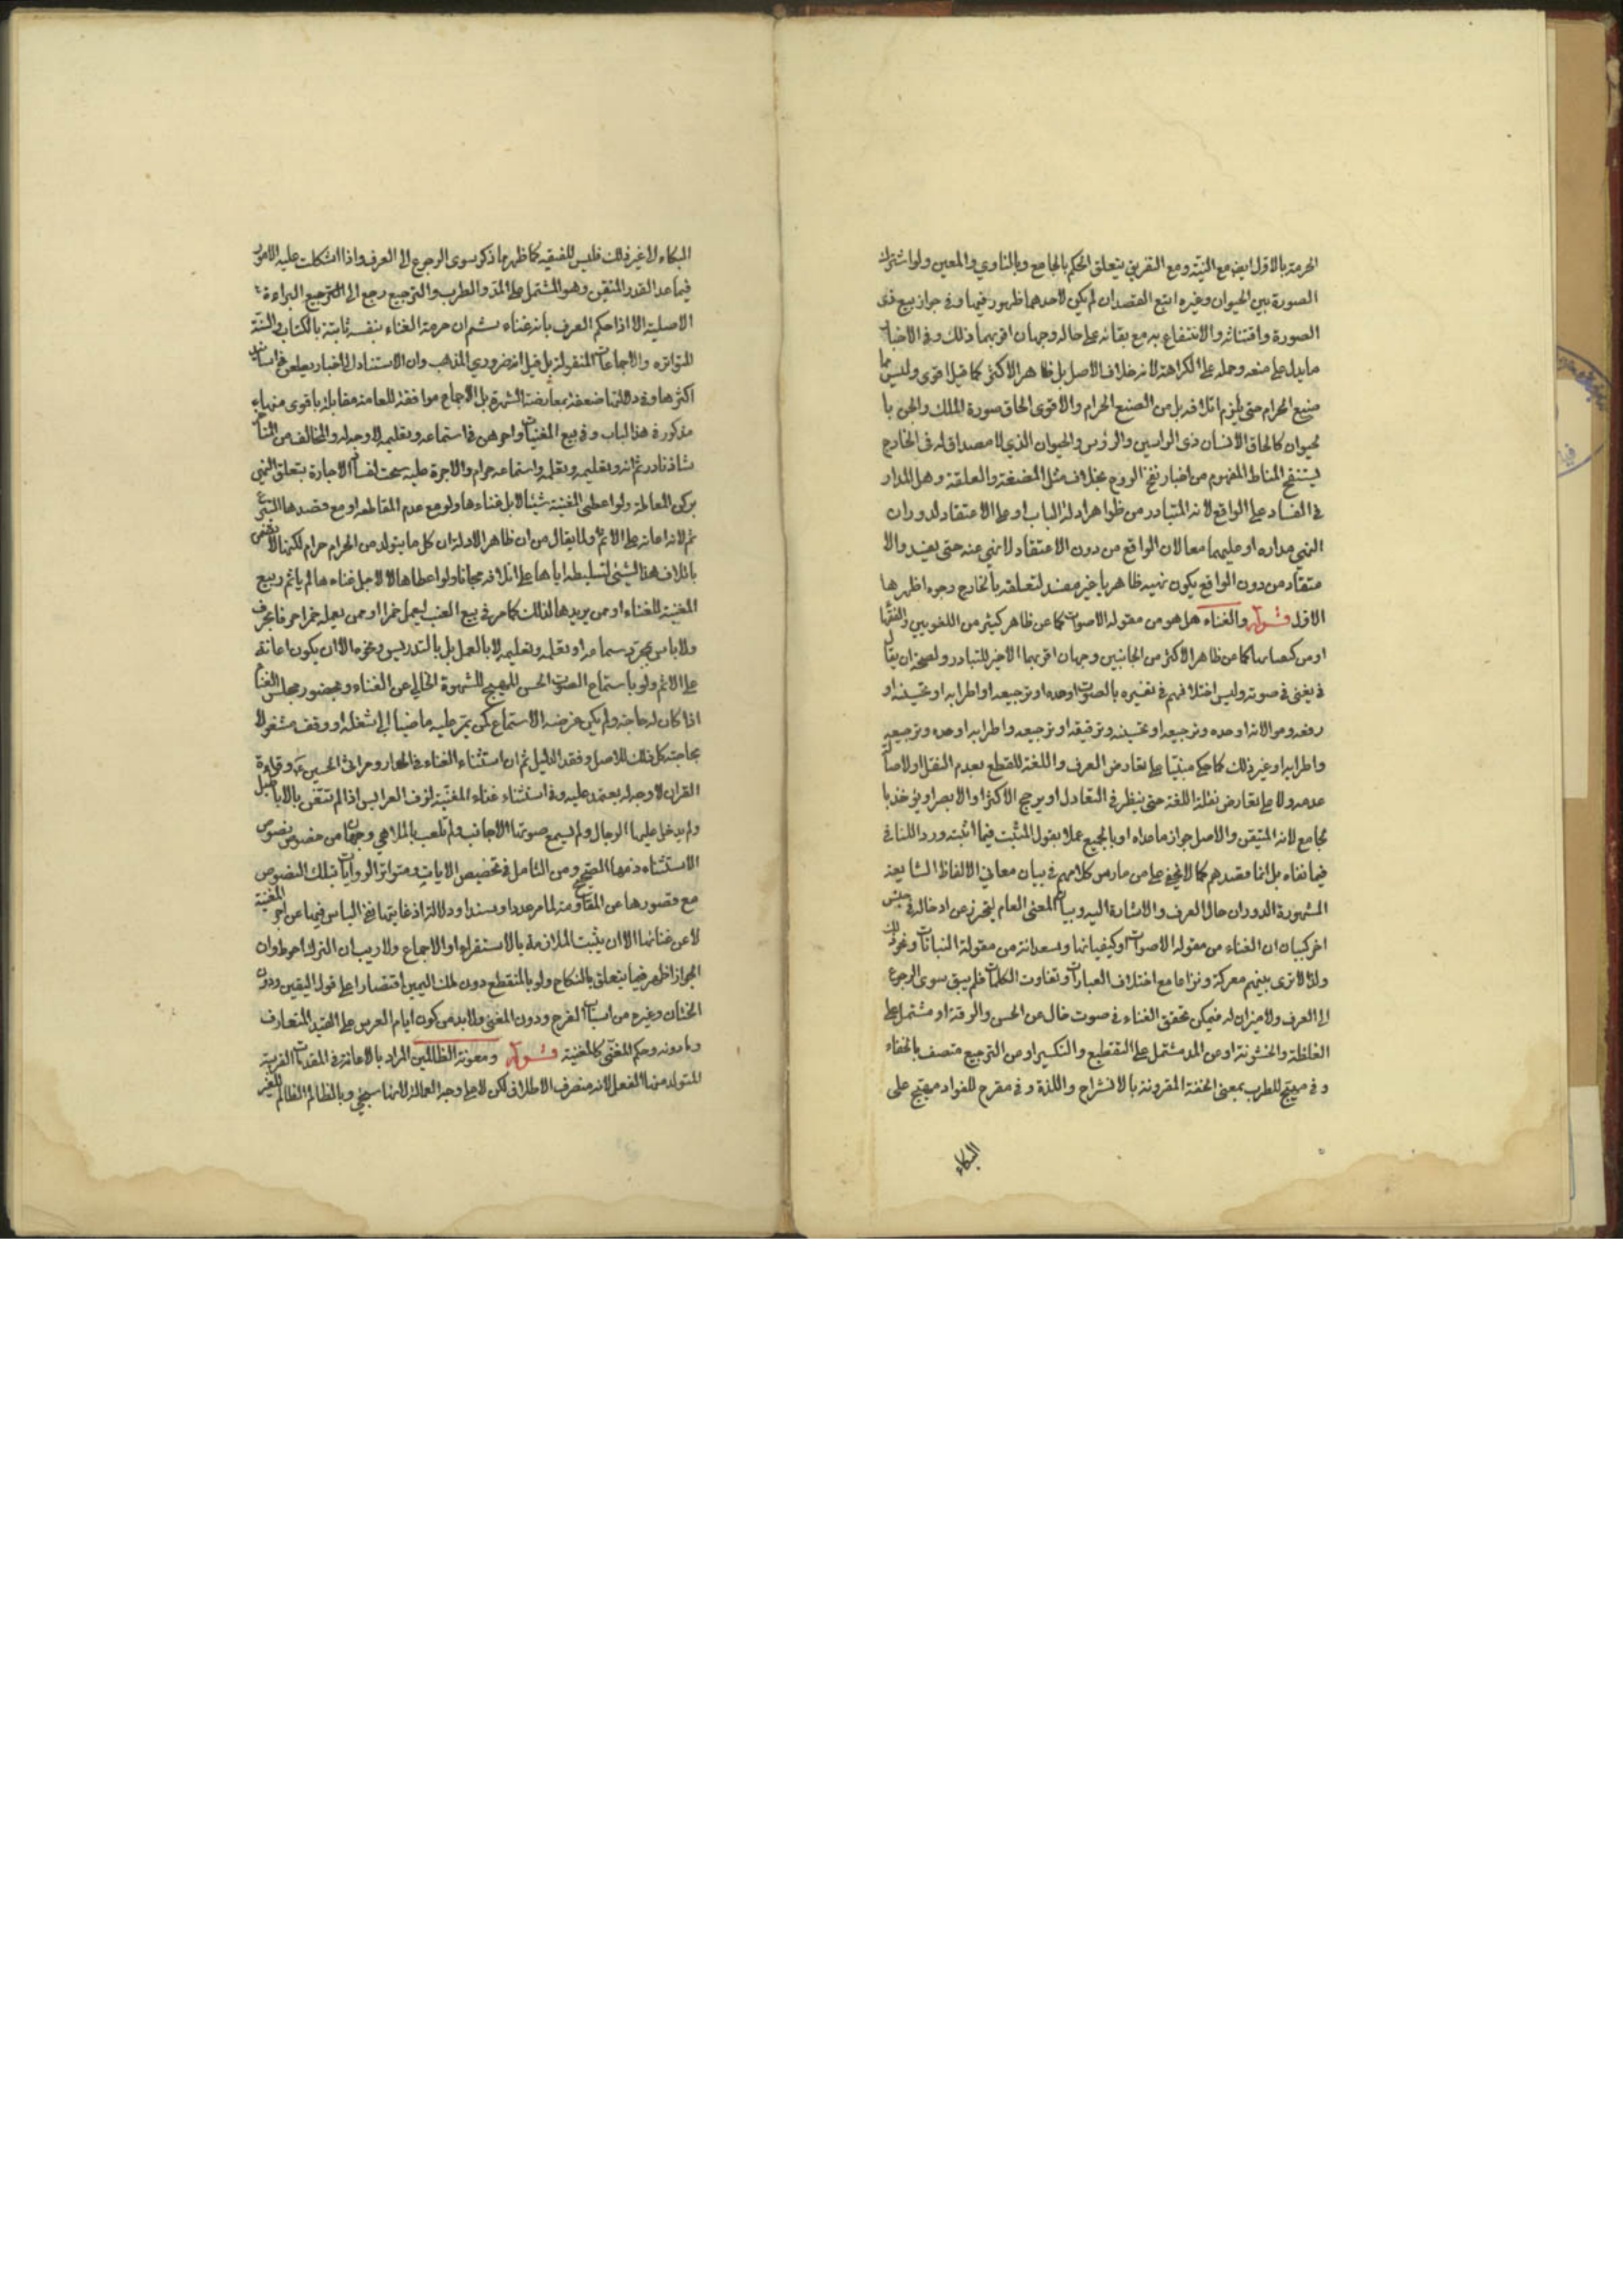 الحرمة بالاول ايض مع النية ومع التفريق يتعلق الحكم بالجامع وبالناوي والمعين ولو اشترك
الصورة بين الحيوان وغيره اتبع القصد ان لم يكن لاحدهما ظهور فيها وفي جواز بيع ذى
الصورة واقتنائه والانتفاع به مع بقائه على حاله وجهان اقربهما ذلك وفى الاخبار
مايدل على منعه وحمله على الكراهة لانه خلاف الاصل بل ظاهر الاكثر كما قيل اقوى وليس مما
صنيع الحرام حتى يلزم اتلافه بل من الصنع الحرام والاقوى الحاق صورة الملك والجن با
لحيوان كالحاق الانسان ذى الراسين والرؤس والحيوان الذي لا مصداق له فى الخارج
لتنقيح المناط المفهوم من اخبار نفخ الروح بخلاف مثل المضغة والعلقة وهل المدار
في الفساد على الواقع لانه المتبادر من ظواهر ادلة الباب او على الاعتقاد لدوران
النهي مداره او عليهما معا لان الواقع من دون الاعتقاد لانهي عنه حتى يفيد والا
عتقاد من دون الواقع يكون نهيه ظاهريا غير مفسد لتعلقه بالخارج وجوه اظهرها
الاول قوله والغناء هل هو من مقوله الاصوات كما عن ظاهر كثير من اللغويين والفقها
او من كيفياتها كما عن ظاهر الاكثر من الجانبين وجهان اقربهما الاخير للتبادر ولصحة ان يقال
فى يغنى فى صوته وليس اختلافهم فى تفسيره بالصوت وحده او ترجيعه او اطرابه او تحسينه او
رفعه وموالاته او مده وترجيعه او تحسينه وترقيقه او ترجيعه واطرابه او مده وترجيعه
واطرابه او غير ذلك كما حكي مبنيا على تعارض العرف واللغة للقطع بعدم النقل او لاصالة
عدمه ولا على تعارض نقلة اللغة حتى ينظر في التعادل او يرجح الاكثر او الابصر او يؤخذ با
لجامع لانه المتيقن والاصل جواز ماعداه او بالجميع عملا بقول المثبت فيما اثبته ورد اللنافي
فيما نفاه بل انما مقصدهم كما لايخفى على من مارس كلامهم فى بيان معاني الالفاظ الشايعة
المشهورة الدوران حال العرف والاشارة اليه وبيان المعنى العام ليتحرز عن ادخاله فى جنس
اخر كبيان ان الغناء من مقوله الاصوات او كيفياتها وسعدانة من مقولة النباتات ونحو ذلك
ولذا لا ترى بينهم معركة ونزاعا مع اختلاف العبارات وتفاوت الكلمات فلم يبق سوى الرجوع
الى العرف ولا ميزان له فيمكن تحقق الغناء فى صوت خال عن الحسن والرقة او مشتمل على
الغلظة والخشونة او من المد مشتمل على التقطيع والتكسير او من الترجيع متصف بالخفاء
و فى مهيج للطرب بمعنى الخفة المقرونة بالانشراح واللذة و فى مقرح للفواد مهيج على
البكاء
البكاء لا غير ذلك فليس للفقيه كما ظهر مما ذكر سوى الرجوع الى العرف واذا اشكلت عليه الامور
فيما عدا القدر المتيقن وهو المشتمل على المد والطرب والترجيع رجع الى الترجيع البراءة
الاصلية الا اذا حكم العرف بانه غناء ثم ان حرمة الغناء بنفسه ثابتة بالكتاب والسنة
المتواتره والاجماعات المنقولة بل قيل انه ضروري المذهب وان الاستناد الى اخبار يطعن فى اسانيد
اكثرها وفى دلالتها ضعفه بمعارضة الشهرة بل الاجماع موافقة للعامة مقابلة باقوى منها
مذكور فى هذا الباب وفي بيع المغنيات واجرهن فى استماعه وتعليمه لا وجه له والمخالف من
شاذ نادر ثم انه وتعليمه وتعلمه واستماعه حرام والاجرة عليه سحت لفساد الاجارة بتعلق النهي
بركن المعاملة ولو اعطى المغنية شيئا لا بل غناءها ولو مع عدم المقاطعه او مع قصدها التبرع
ثم لانه اعانه على الاثم ولما يقال من ان ظاهر الادلة ان كل ما يتولد من الحرام حرام لكنها لا تضمن
باتلاف هذا الشيئ لتسليطه اياها على اتلافه مجانا ولو اعطاها لا لاجل غناءها لم ياثم وبيع
المغنية للغناء او ممن يريدها لذلك كما مر في بيع العنب ليعمل خمرا او ممن يعمله خمرا حرفا بحرف
ولا باس بمجرد سماعه او تعلمه وتعليمه لا بالعمل بل بالتدريس ونحوه الا ان يكون اعانة
على الاثم ولو باستماع الصوت الحسن المهيج للشهوة الخالي عن الغناء و بحضور مجلس الغناء
اذا كان له حاجة ولم يكن غرضه الاستماع كمن يمر عليه ماضيا الى شغله او وقف مشغولا
بحاجته كل ذلك للاصل وفقد الدليل ثم ان استثناء الغناء فى الحداء ومراثى الحسين ع وقراءة
القران لا وجه له يعتمد عليه وفى استثناء غناء المغنية لزف العرايس اذا لم تتغنى بالاباطيل
ولم يدخل عليها الرجال ولم يسمع صوتها الاجانب ولم تلعب بالملاهي وجهان من خصوص نصوص
الاستثناء وفيها الصحيح ومن التامل فى تخصيص الايات ومتواتر الروايات بتلك النصوص
مع قصورها عن المقاومة لما مر عددا وسندا ودلالة اذ غايتها نفي الباس فيها عن اجر المغنية
لا عن غنائها الا ان يثبت الملازمة بالاستقراء او الاجماع ولا ريب ان الترك احوط وان
الجواز اظهر فيما يتعلق بالنكاح ولو بالمنقطع دون ملك اليمين اقتصارا على قوله اليقين ودون
الختان وغيره من اسباب الفرح ودون المغني ولابد من كون ايام العرس على الحد المتعارف
ومادونه وحكم المغنى كالمغنية قوله ومعونة الظالمين المراد بالاعانة فى المقدمات القريبة
المتولد منها الفعل لانه منصرف الاطلاق لكن لا على وجه العمالة لانها سيجئ وبالظالم الظالم للغير